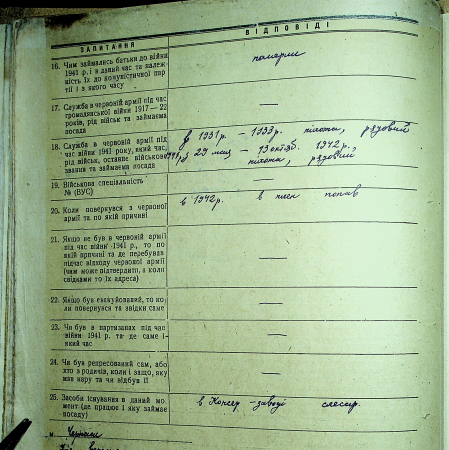 ЗАПИТАННЯ
ВІДПОВІДІ
16. Чим займались батьки до війни
1941 р. і в даний час та належ-
ність їх до комуністичної пар-
тії і з якого часу
померли
17. Служба в червоній армії під час
громадянської війни 1917 — 22
років, рід військ та займаема
посада
—
18. Служба в червоній армії
під час війни 1941 року, який час,
рід військ, останнє військове
звання та займаема посада
1931 р. — 1933 р. піхота, рядовий
1941 р. 29 — 13 октяб. 1942 р.
піхота, рядовий
19. Військова спеціальність
№ (ВУС)
—
20. Коли повернувся з червоної
армії та по якій причині
в 1942 р. в плен попав
21. Якщо не був в червоній армії
під час війни 1941 р., то по
якій причині та де перебував
підчас відходу червоної армії
(чим може підтвердити, а коли
свідками то їх адреса)
—
22. Якщо був евакуйований, то ко-
ли повернувся та звідки саме
—
23. Чи був в партизанах під час
війни 1941 р. та де саме і
який час
—
24. Чи був репресований сам, або
хто з родичів, коли і защо, яку
мав кару та чи відбув її
—
25. Засоби існування в даний мо-
мент (де працює і яку займає
посаду)
в Консер. заводі слесар.
м.